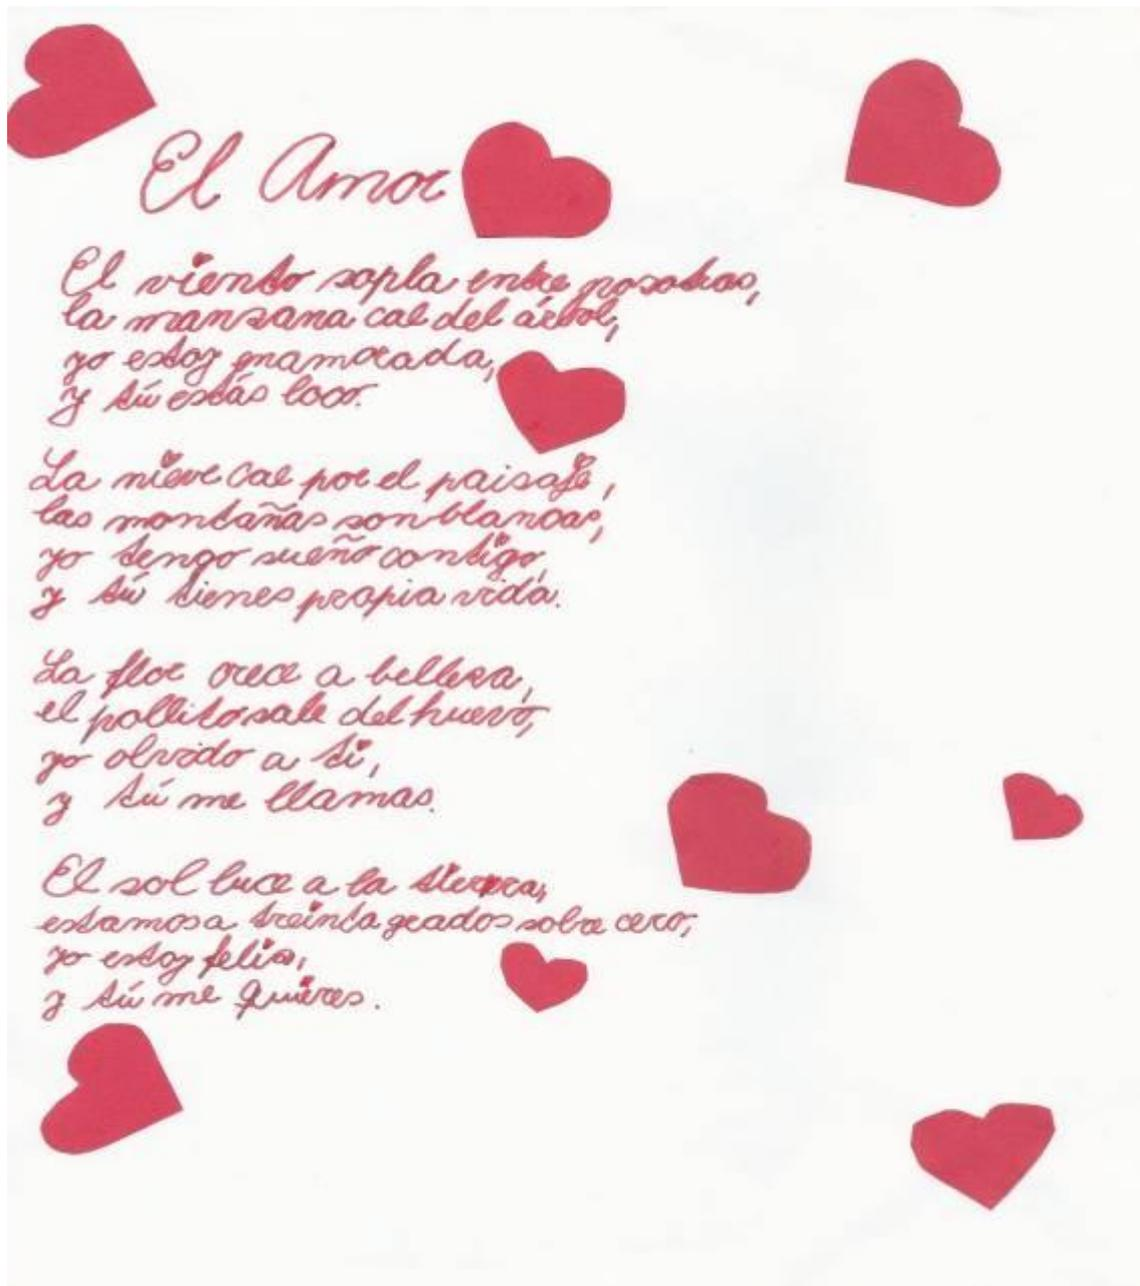 El Amor
El viento sopla entre nosotros,
la manzana cae del árbol,
yo estoy enamorada,
y tú estás loco.
La nieve cae por el paisaje,
las montañas son blancas,
yo tengo sueño contigo,
y tú tienes propia vida.
La flor crece a belleza,
el pollito sale del huevo,
yo olvido a ti,
y tú me llamas.
El sol luce a la tierra,
estamos a treinta grados sobre cero,
yo estoy feliz,
y tú me quieres.